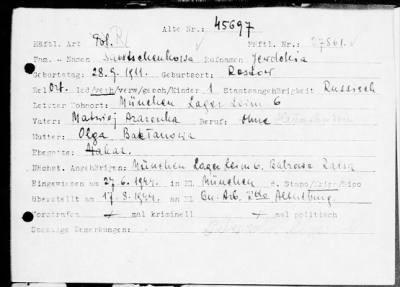 Alte Nr.: 45697
Häftl. Art Pol. R Häftl. Nr.: 27561
Fam. - Namen Sawtschenkowa Rufnamen Jewdokia
Geburtstag: 28.9.1911. Geburtsort: Rostow
Rel Ort. led/gesch/verw/gesch/Kinder 1 Staatsangehörigkeit Russisch
Letzter Wohnort: München Lager Leim 6
Vater: Matwiej Beruf: ohne
Mutter: Olga Baktanowa
Ehegatte: Makar.
Nächst. Angehörigen: München Lager Leim 6.
Eingewiesen am 27.6.1944. in KL München d. Stapo/Kripo/Sipo
Überstellt am 17.8.1944. an KL Bu-Arb. Altenburg.
Vorstrafen mal kriminell mal politisch
Sonstige Bemerkungen: